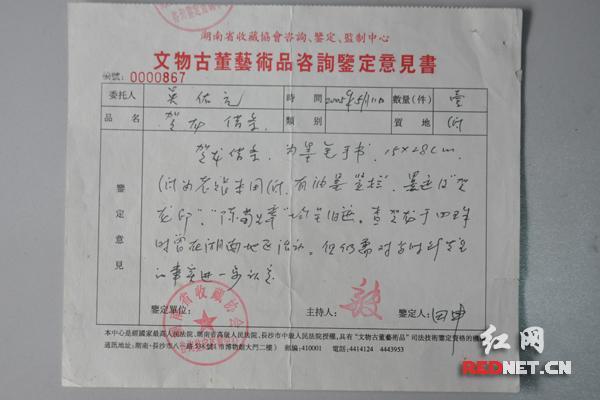 湖南省收藏協會咨詢、鑒定、監制中心
文物古董藝術品咨詢鑒定意見書
編號：0000867
委托人 吴佑 時間 2005年5月11日 数量(件) 壹
品名 贺龙借条 類别 質地 纸
鑒定意見
贺龙借条，为墨笔手书，15×28cm，
纸为老账本用纸，有油墨竖栏，墨迹及"贺
龙印"、"陈 章" 旧 。查贺龙于
时曾在湖南地区活动。但仍需对当时
的事 进一步认定
鑒定單位：
湖南省收藏协会
主持人：
鑒定人：田申
本中心是經國家最高人民法院、湖南省高級人民法院、長沙市中級人民法院授權，具有"文物古董藝術品"司法技術鑒定資格的機
通訊地址：湖南·長沙市八一路538號(市博物館大門二樓) 郵編：410001 電話：4414124 4443953
红网
REDNET.CN